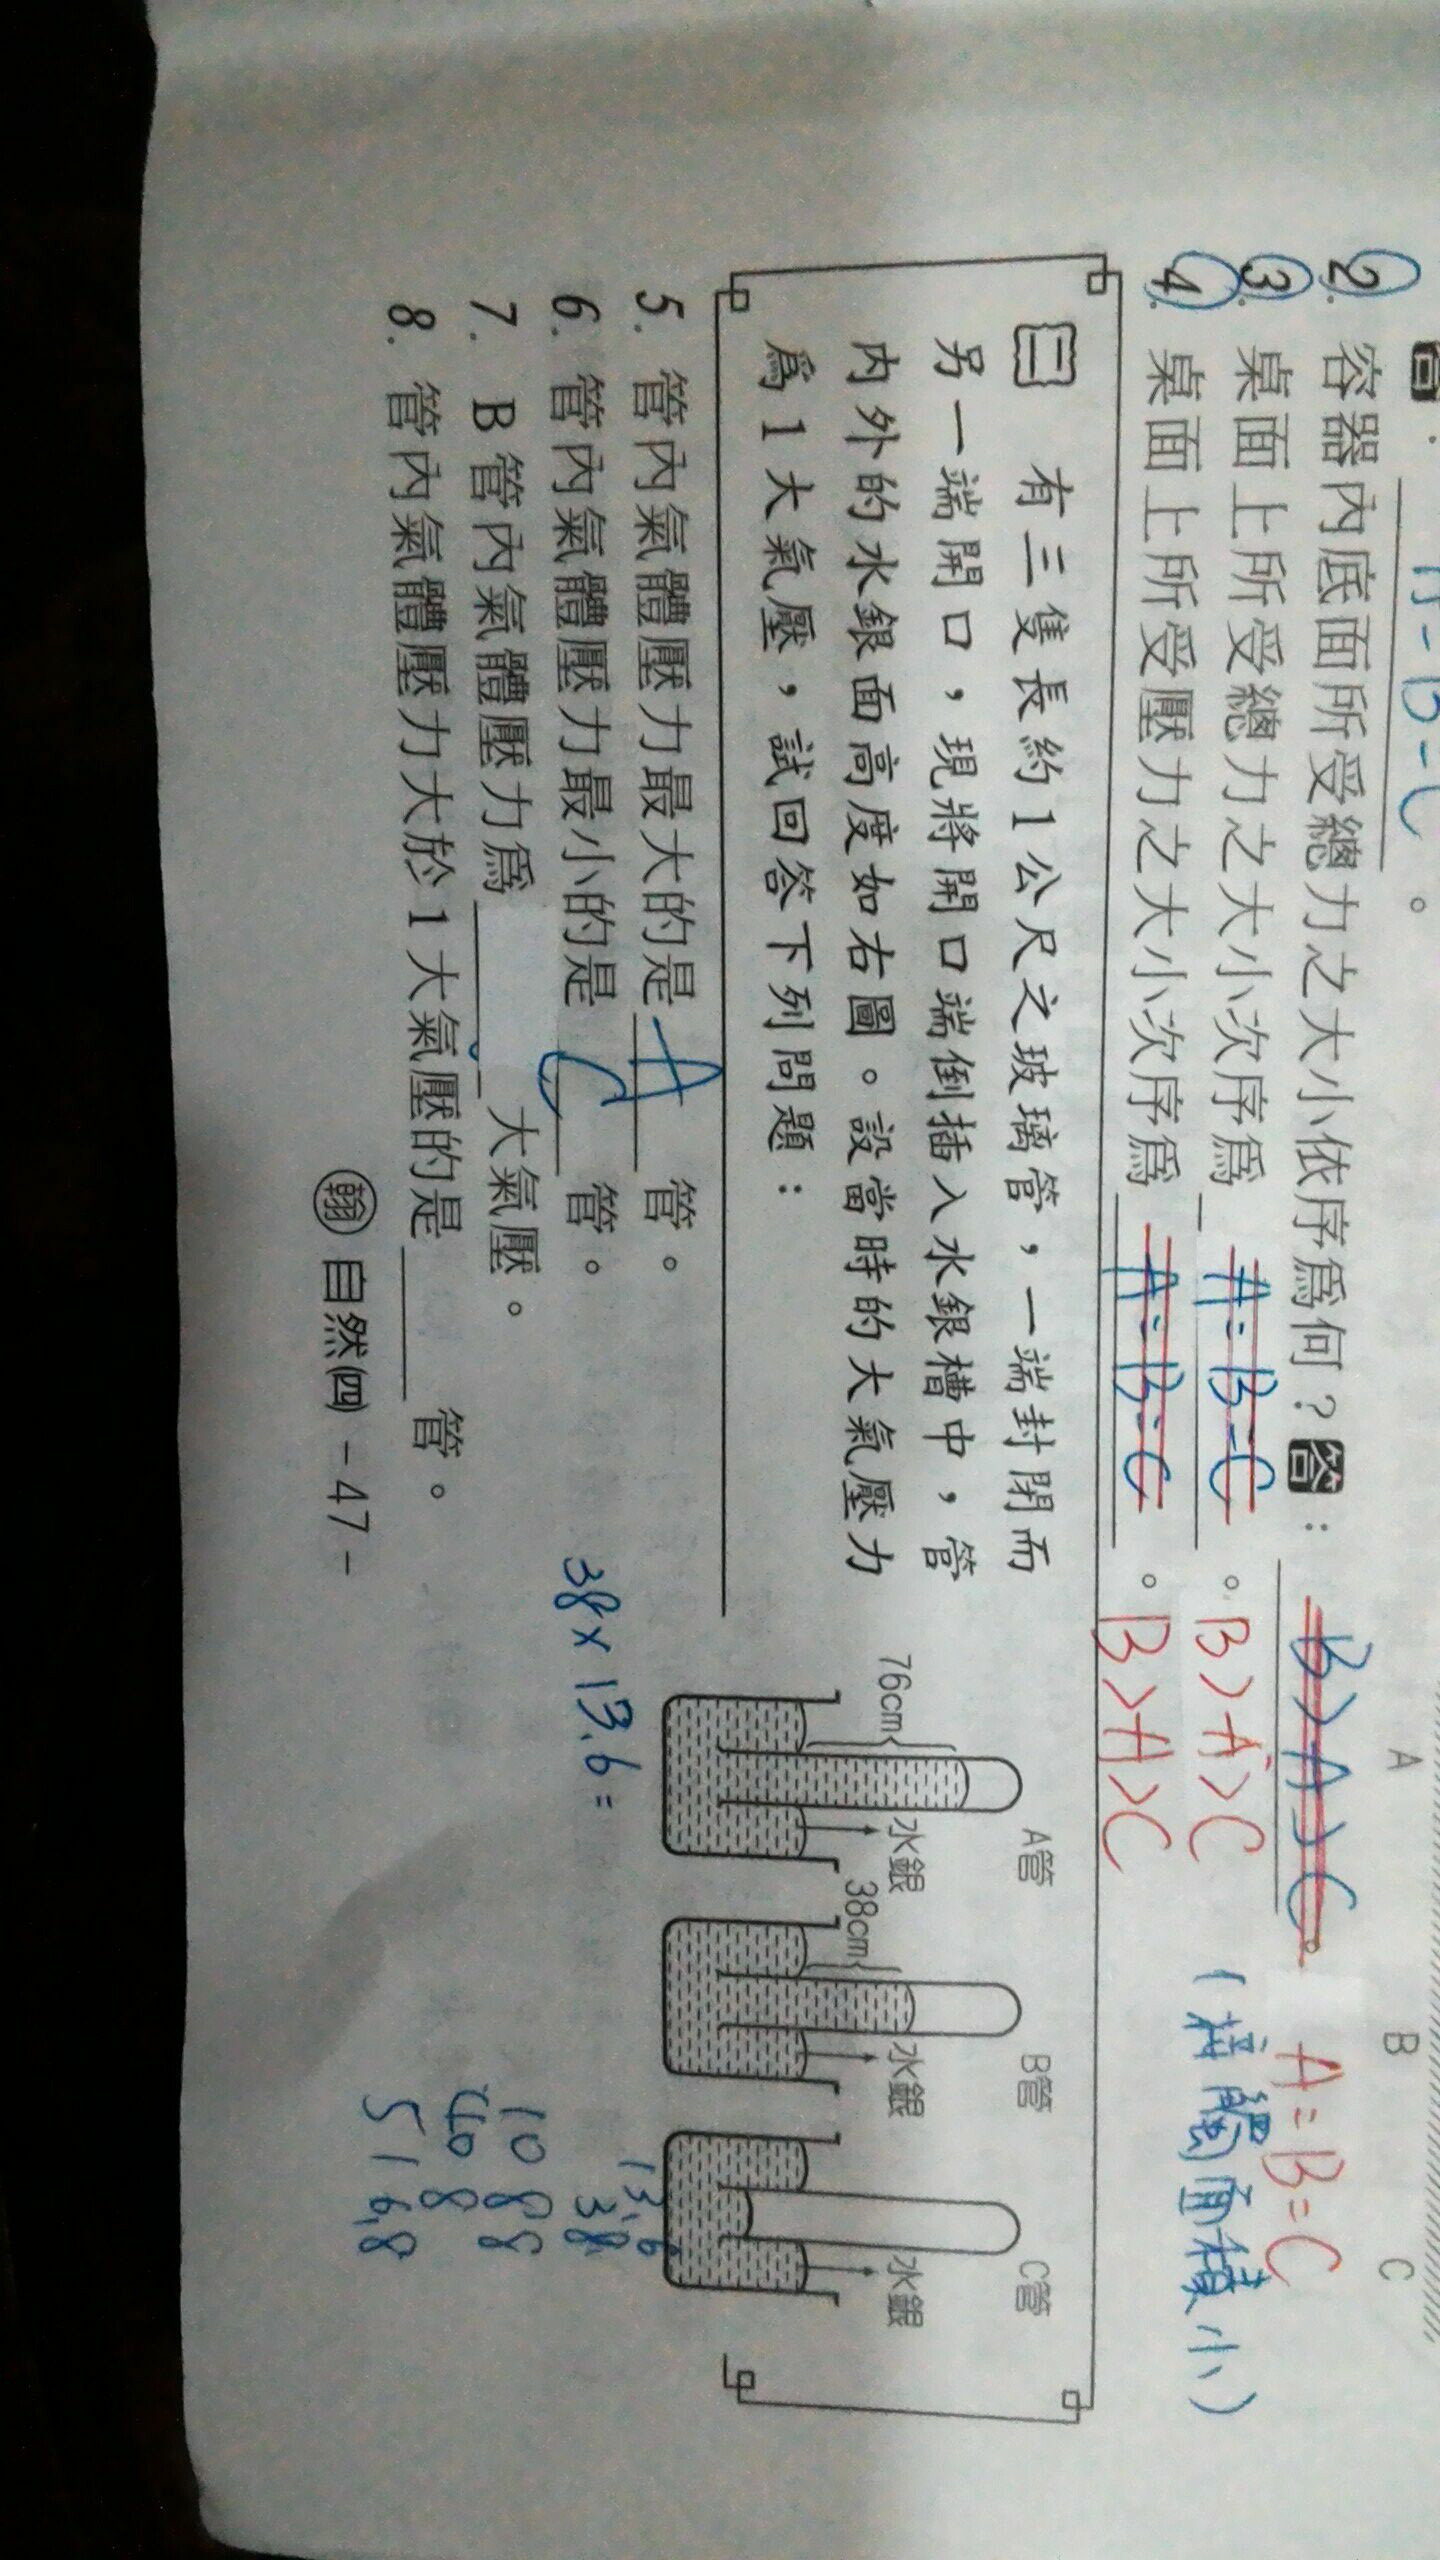 A B C
答: A=B=C 。
2. 容器內底面所受總力之大小依序爲何?答: B>A>C。 A=B=C
3. 桌面上所受總力之大小次序爲 A=B=C 。B>A>C
4. 桌面上所受壓力之大小次序爲 A=B=C 。B>A>C
面積小)
二 有三隻長約1公尺之玻璃管,一端封閉而
另一端開口,現將開口端倒插入水銀槽中,管
內外的水銀面高度如右圖。設當時的大氣壓力
爲1大氣壓,試回答下列問題:
A管 B管 C管
76cm 水銀 38cm 水銀 水銀
5. 管內氣體壓力最大的是 A 管。
6. 管內氣體壓力最小的是 C 管。
7. B管內氣體壓力爲 大氣壓。
8. 管內氣體壓力大於1大氣壓的是 管。
38×13.6=
13.6
38
1088
408
516.8
翰 自然(四) -47-